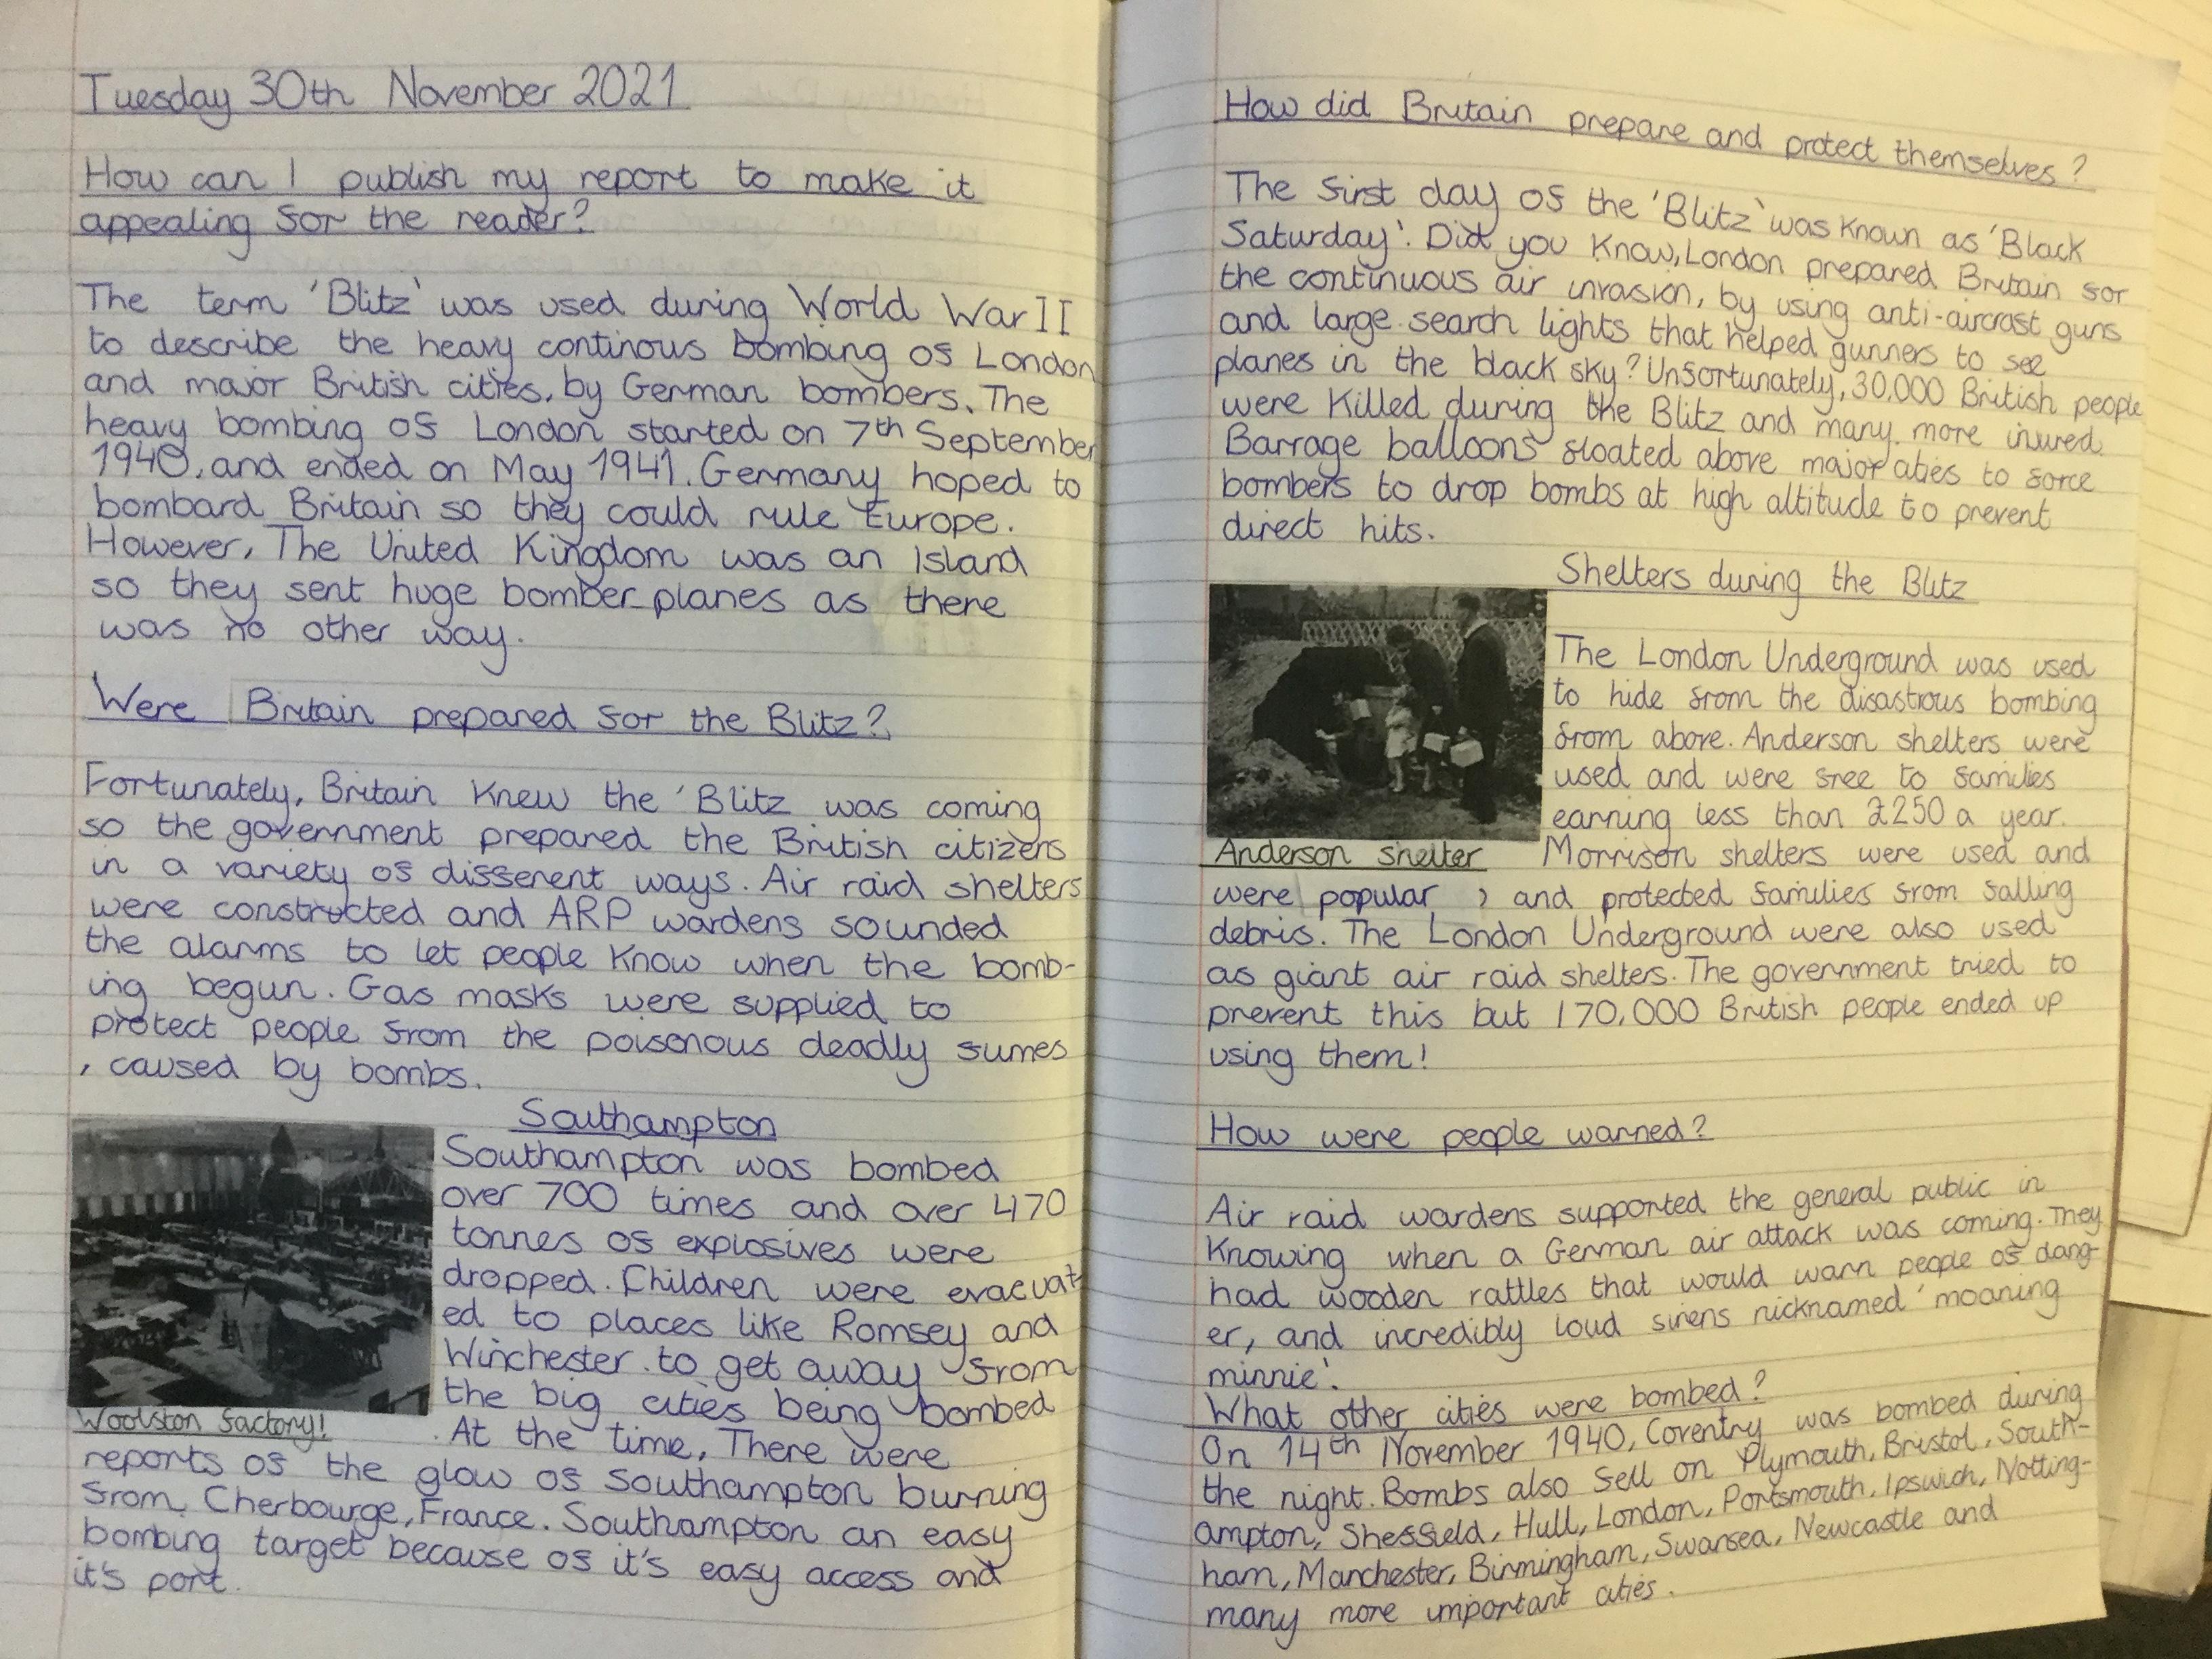 Tuesday 30th November 2021
How can I publish my report to make it
appealing for the reader?
The term 'Blitz' was used during World War II
to describe the heavy continous bombing of London
and major British cities, by German bombers. The
heavy bombing of London started on 7th September
1940, and ended on May 1941. Germany hoped to
bombard Britain so they could rule Europe.
However, The United Kingdom was an Island
so they sent huge bomber planes as there
was no other way.
Were Britain prepared for the Blitz?
Fortunately, Britain Knew the 'Blitz was coming
so the government prepared the British citizens
in a variety of different ways. Air raid shelters
were constructed and ARP wardens sounded
the alarms to let people know when the bomb-
ing begun. Gas masks were supplied to
protect people from the poisonous deadly fumes
, caused by bombs.
Southampton
Southampton was bombed
over 700 times and over 470
tonnes of explosives were
dropped. Children were evacuat-
ed to places like Romsey and
Winchester. to get away from
the big cities being bombed
Woolston factory!
. At the time, There were
reports of the glow of Southampton burning
from Cherbourge, France. Southampton an easy
bombing target because of it's easy access and
it's port.
How did Britain prepare and protect themselves?
The first day of the 'Blitz' was known as 'Black
Saturday'. Did you know, London prepared Britain for
the continuous air invasion, by using anti-aircraft guns
and large search lights that helped gunners to see
planes in the black sky? Unfortunately, 30,000 British people
were killed during the Blitz and many more injured.
Barrage balloons floated above major cities to force
bombers to drop bombs at high altitude to prevent
direct hits.
Shelters during the Blitz
The London Underground was used
to hide from the disastrous bombing
from above. Anderson shelters were
used and were free to families
earning less than £250 a year.
Anderson shelter
Morrison shelters were used and
were popular , and protected families from falling
debris. The London Underground were also used
as giant air raid shelters. The government tried to
prevent this but 170,000 British people ended up
using them!
How were people warned?
Air raid wardens supported the general public in
Knowing when a German air attack was coming. They
had wooden rattles that would warn people of dang-
er, and incredibly loud sirens nicknamed 'moaning
minnie'.
What other cities were bombed?
On 14th November 1940, Coventry was bombed during
the night. Bombs also fell on Plymouth, Bristol, South-
ampton, Sheffield, Hull, London, Portsmouth, Ipswich, Notting-
ham, Manchester, Birmingham, Swansea, Newcastle and
many more important cities.